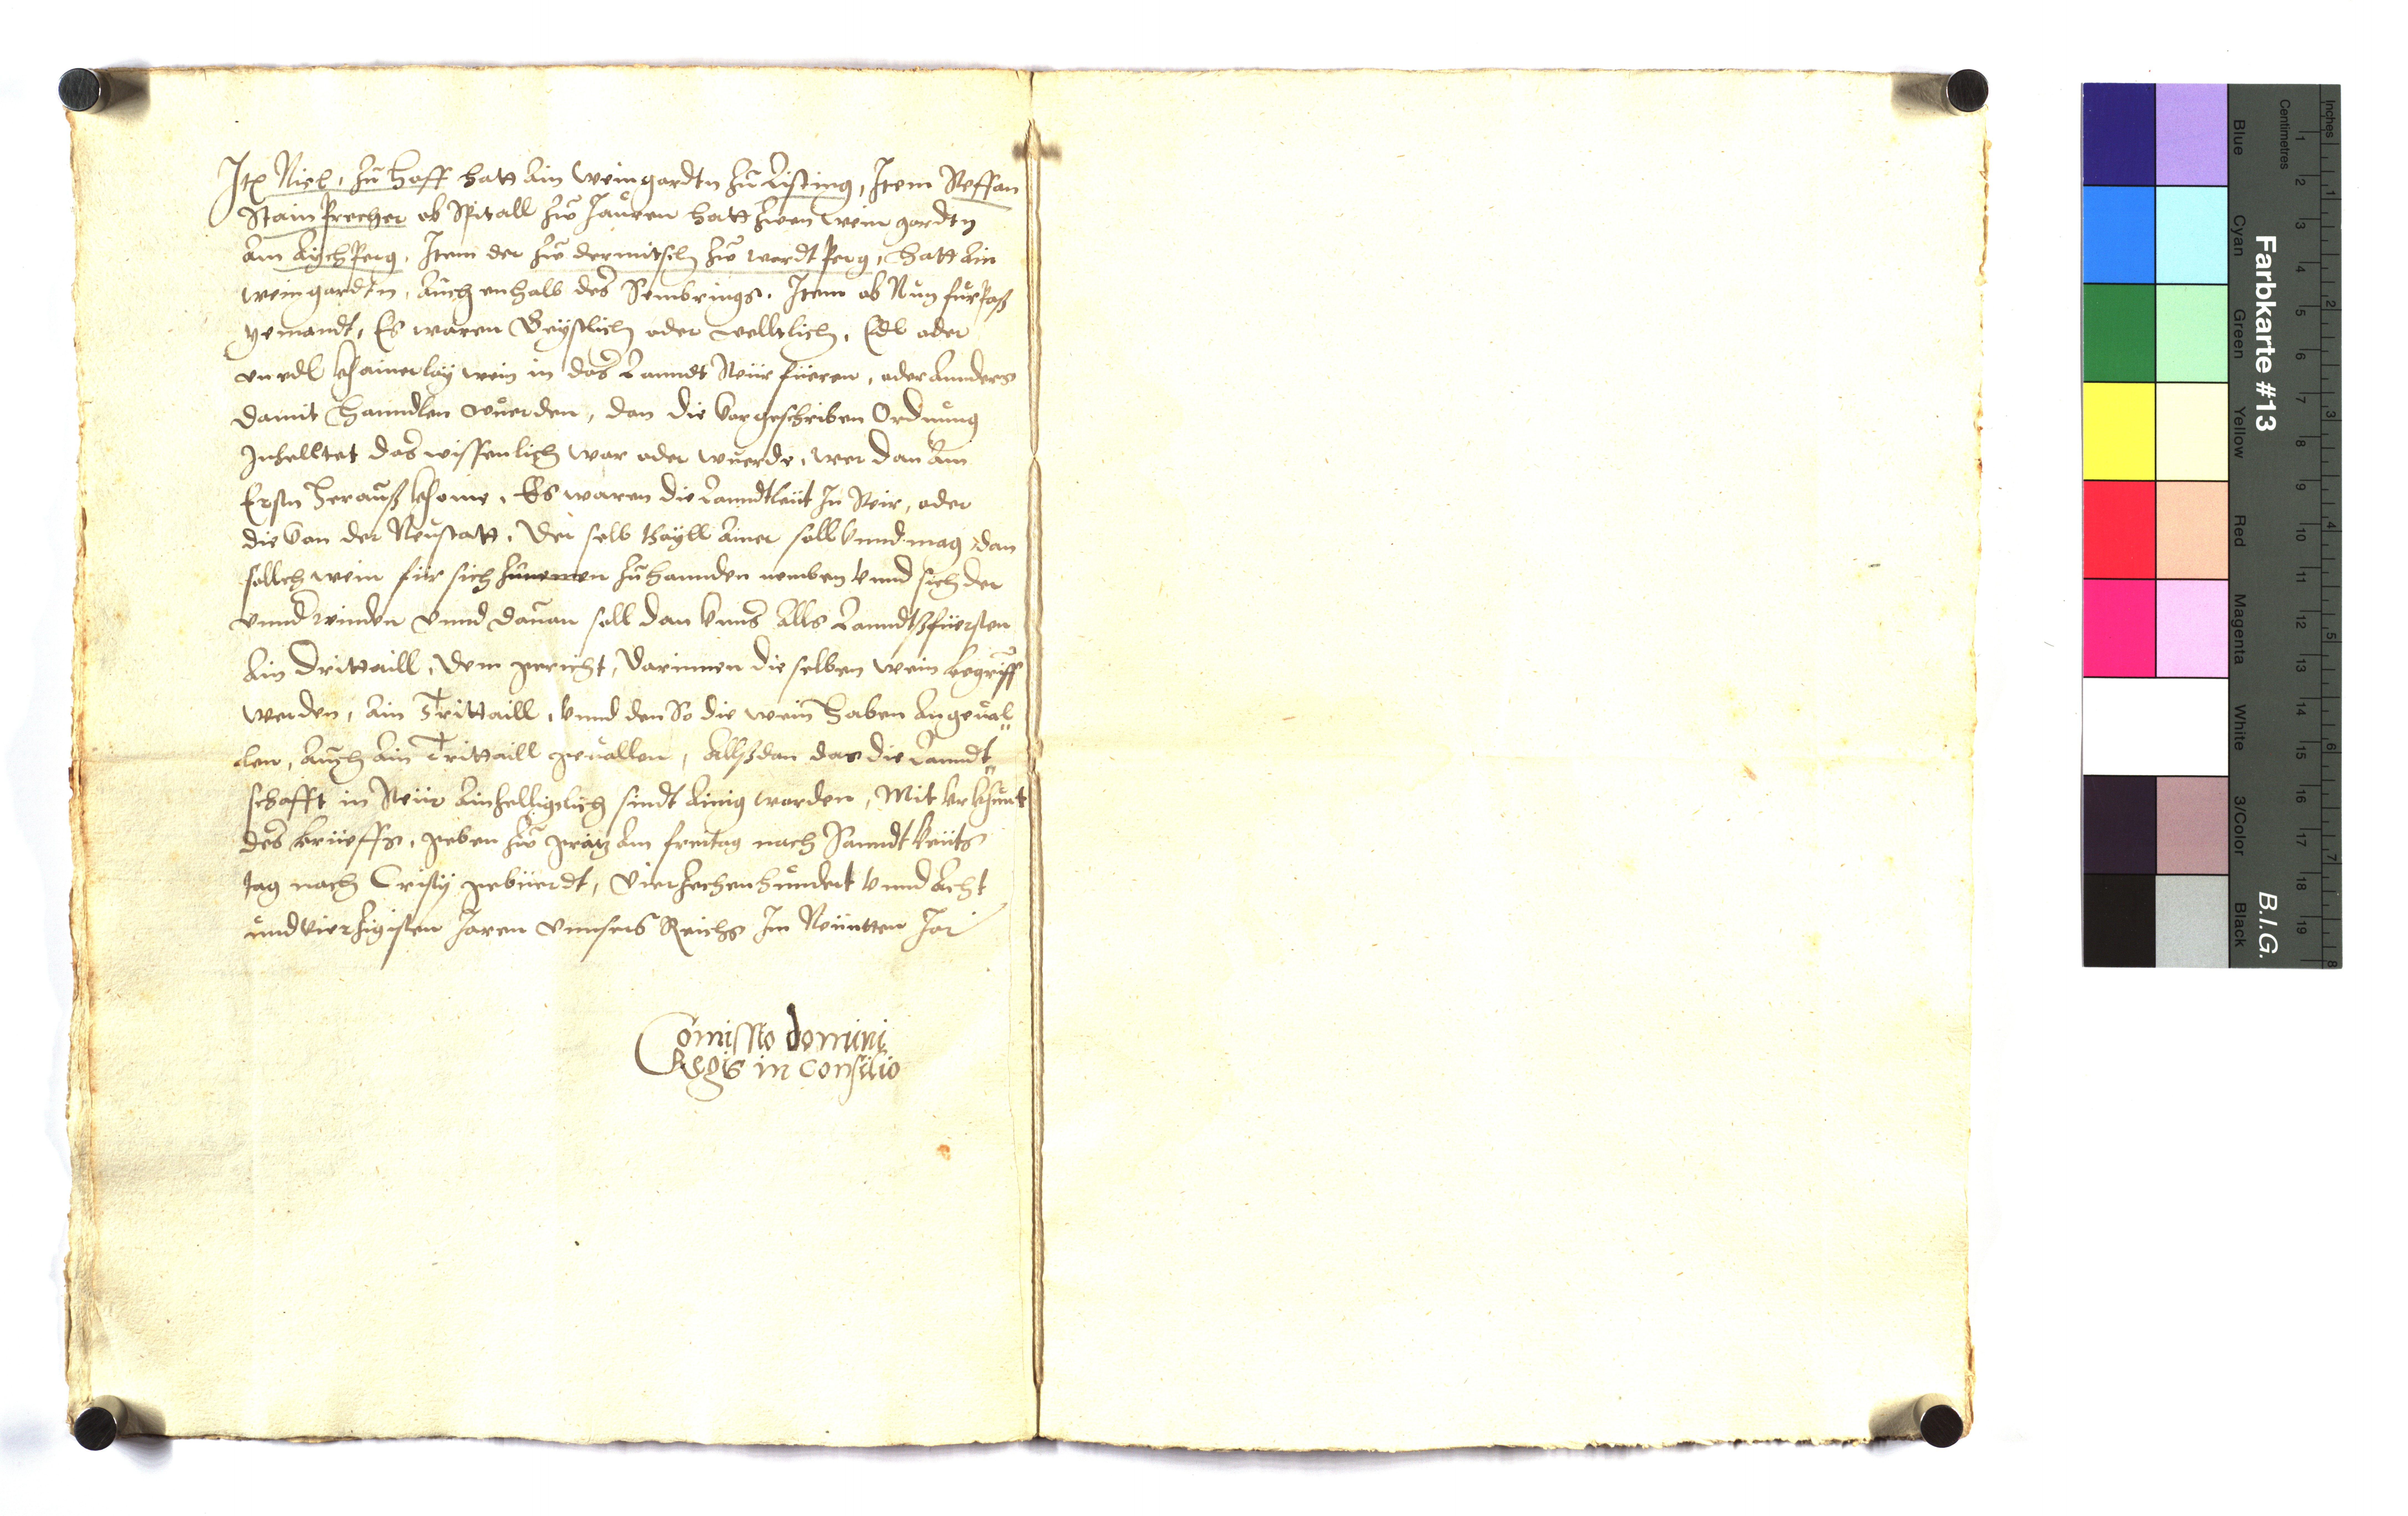 Itē Niel, zu hoff hatt ain weingardtn zu Listing, Item Steffan
Stain Precher ob Spitall zw Jauren hatt zwen wein gardtn
Am AychPerg, Item der zw dermitsch zw wardt Perg, hatt ain
weingardtn, auch enhalb des Sembrings. Item ob Nun furPaß
yemandt, Es waren Geystlich oder welltlich, Edl oder
unedl khainerlay wein in das Lanndt Steür füeren, oder annders
damit hanndlen wuerden, dan die vorgeschriben Ordnung
Inhelltet das wissenlich war oder wuerde, wer dan am
Ersten herauß khome, Es waren die Lanndtleüt In Steir, oder
die von der Neustatt, Der selb thayll ainer soll vnnd mag dan
sollch wein für sich zunemen zu hannden nemben vnnd sich der
vnnd winden vnnd dauon soll dan vnns alls Lanndtßfüersten
Ain drittaill, dem gericht, darinnen die selben wein begriff
werden, ain Trittaill, vnnd den So die wein haben angeual„
len, auch ain Trittaill geuallen, allßdan das die Lanndt„
schafft in Steür ainhelligclich sindt ainig worden, Mit vrkhunt
des brieffs, geben zw grätz am freitag nach Sanndt veits
tag nach Cristy gebüerdt, vierzechenhundert vnnd Acht
undvierzigisten Jaren vnnsers Reichs Im Neuntten Jar
Comissio domini
Regis in consilio
Farbkarte #13
B.I.G.
Blue
Cyan
Green
Yellow
Red
Magenta
White
3/Color
Black
Centimetres
Inches
1 2 3 4 5 6 7 8 9 10 11 12 13 14 15 16 17 18 19
1 2 3 4 5 6 7 8